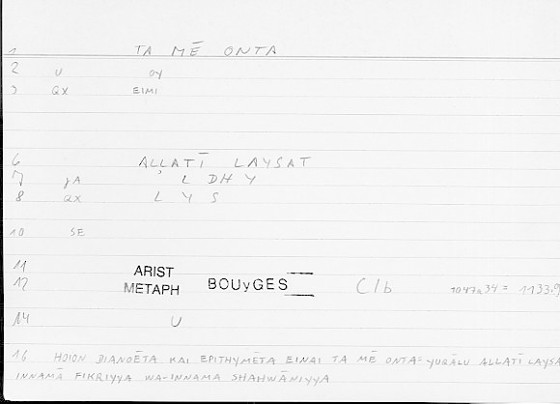 1 TA MĒ ONTA
2 U OY
3 QX EIMI
6 ALLATĪ LAYSAT
7 gA L DH Y
8 QX L Y S
10 SE
11 ARIST
12 METAPH BOUyGES C/b 1047a34 = 1133.9
14 U
16 HOION DIANOĒTA KAI EPITHYMĒTA EINAI TA MĒ ONTA = YUQĀLU ALLATĪ LAYSA
INNAMĀ FIKRIYYA WA-INNAMA SHAHWĀNIYYA